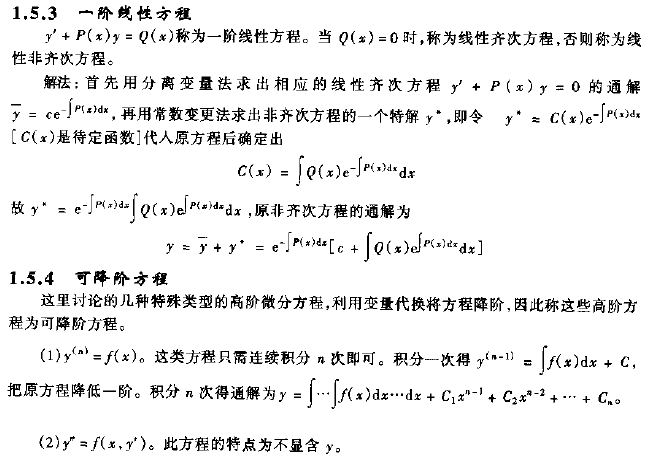 1.5.3 一阶线性方程
y′ + P(x)y = Q(x)称为一阶线性方程。当 Q(x)=0时,称为线性齐次方程,否则称为线
性非齐次方程。
解法:首先用分离变量法求出相应的线性齐次方程 y′ + P(x)y = 0 的通解
y̅ = ce^{-∫P(x)dx},再用常数变更法求出非齐次方程的一个特解 y*,即令 y* = C(x)e^{-∫P(x)dx}
[C(x)是待定函数]代入原方程后确定出
C(x) = ∫Q(x)e^{-∫P(x)dx}dx
故 y* = e^{-∫P(x)dx}∫Q(x)e^{∫P(x)dx}dx ,原非齐次方程的通解为
y = y̅ + y* = e^{-∫P(x)dx}[c + ∫Q(x)e^{∫P(x)dx}dx]
1.5.4 可降阶方程
这里讨论的几种特殊类型的高阶微分方程,利用变量代换将方程降阶,因此称这些高阶方
程为可降阶方程。
(1)y^{(n)} = f(x)。这类方程只需连续积分 n 次即可。积分一次得 y^{(n-1)} = ∫f(x)dx + C,
把原方程降低一阶。积分 n 次得通解为 y = ∫⋯∫f(x)dx⋯dx + C₁x^{n-1} + C₂x^{n-2} + ⋯ + Cₙ。
(2)y″ = f(x,y′)。此方程的特点为不显含 y。